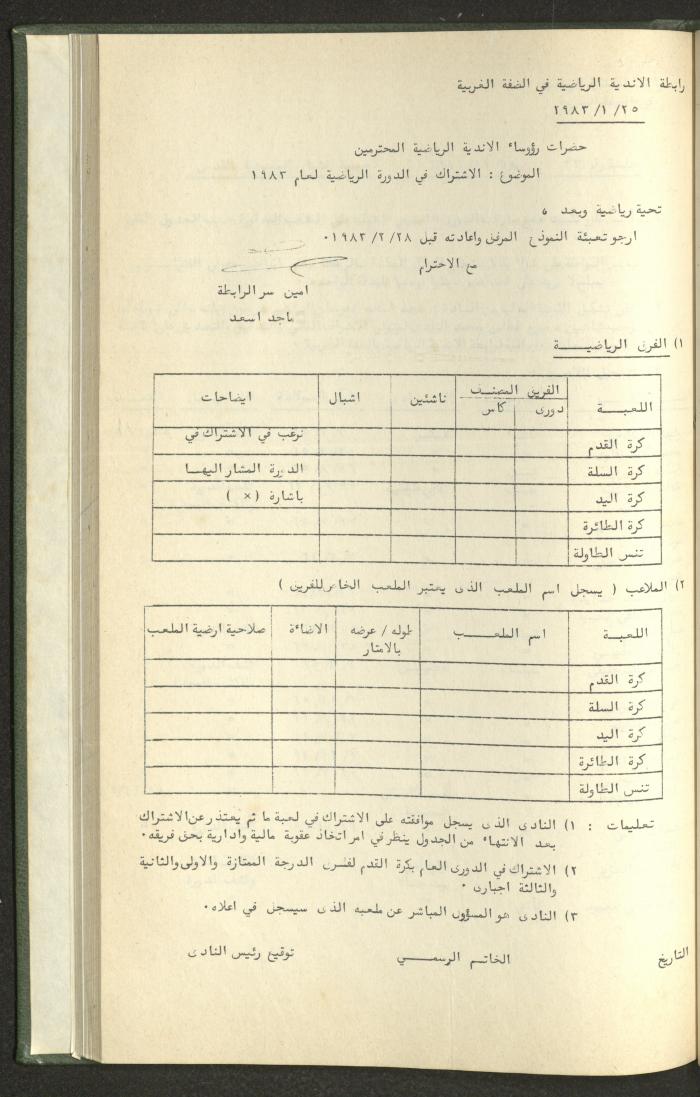 رابطة الاندية الرياضية في الضفة الغربية
٢٩٨٣/١/٢٥
حضرات رؤوساء الاندية الرياضية المحترمين
الموضوع : الاشتراك في الدورة الرياضية لعام ١٩٨٣
تحية رياضية وبعد ،
ارجو تعبئة النموذج المرفق واعادته قبل ١٩٨٣/٢/٢٨٠
مع الاحترام
امين سر الرابطة
ماجد اسعد
١) الفرق الرياضيـــة
اللعبــة الفريق المصنف ناشئين اشبال ايضاحات
دورى كاس
كرة القدم نرغب في الاشتراك في
كرة السلة الدورة المشار اليهــا
كرة اليد باشارة ( × )
كرة الطائرة
تنس الطاولة
٢) الملاعب ( يسجل اسم الملعب الذى يعتبر الملعب الخاص للفريق )
اللعبــة اسم الملعــب طوله / عرضه الاضاءة صلاحية ارضية الملعب
بالامتار
كرة القدم
كرة السلة
كرة اليد
كرة الطائرة
تنس الطاولة
تعليمات : ١) النادى الذى يسجل موافقته على الاشتراك في لعبة ما ثم يعتذر عن الاشتراك
بعد الانتهاء من الجدول ينظر في امر اتخاذ عقوبة مالية وادارية بحق فريقه٠
٢) الاشتراك في الدورى العام بكرة القدم لفرق الدرجة الممتازة والاولى والثانية
والثالثة اجبارى ٠
٣) النادى هو المسؤول المباشر عن ملعبه الذى سيسجل في اعلاه٠
التاريخ الخاتم الرسمــي توقيع رئيس النادى